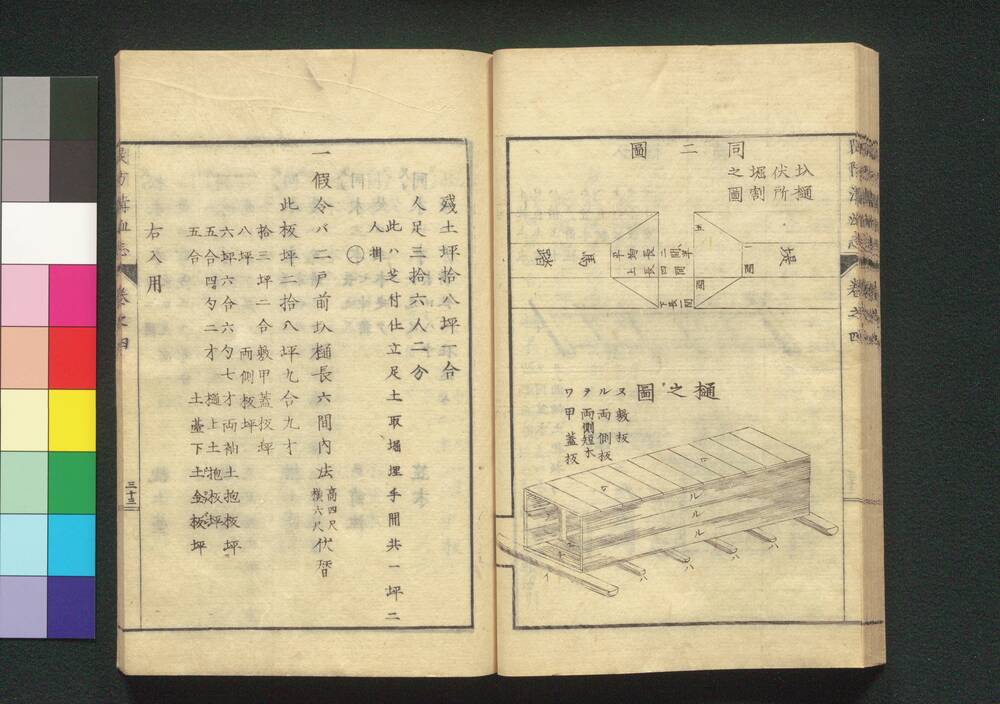 同二圖
圦樋
伏所
堀割
之圖
堤
馬踏
樋之圖
ヌ敷板
ル両側板
ヲ両側短木
ワ甲蓋板
ワ
ワ
ル
ル
ル
ハ
ハ
ハ
ハ
イ
残土坪拾八坪一合
人足三拾六人二分
此ハ芝付仕立足土取堀埋手間共一坪二
人掛
一假令バ二戸前圦樋長六間内法高四尺横六尺伏替
此板坪二拾八坪九合九才
拾三坪二合敷甲蓋板坪
八坪 両側板坪
六坪六合六勺七才両袖土抱板坪
五合四勺二才樋上土抱板坪
五合 土䑓下土金板坪
右入用
卷之四
三十三
卷之四